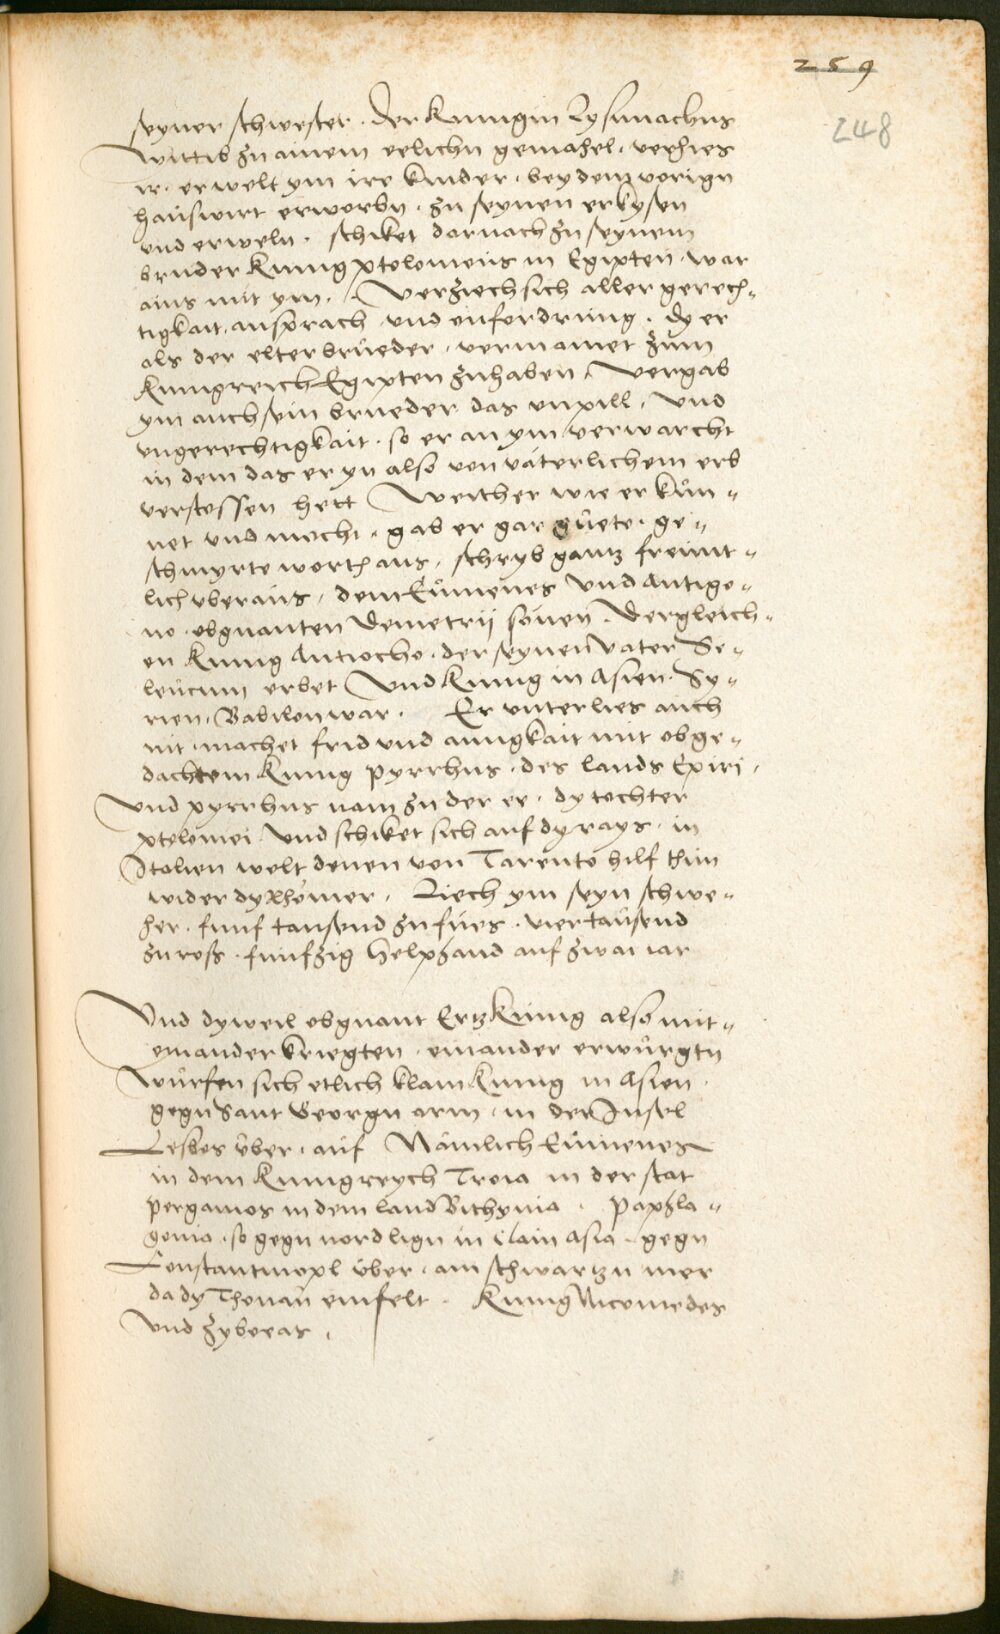 259
248
seyner schwester. der Kunigin Lysimachus
Wittib zu ainem eelichn gemahel. verhies
ir. er welt ym ire kinder. bey dem vorign
hauswirt erworbn. zu seynen erkysen
vnd erweln. schiket darnach zu seynem
bruder Kunig ptolomeus in Egipten. war
ains mit ym. Verziech sich aller gerech-
tigkait. ansprach vnd einfordrung. dy er
als der elter brueder. vermainet zum
Kunigreich Egipten zuhaben. Vergab
ym auch sein brueder das vnpill. Vnd
vngerechtigkait. so er an ym verwarcht
in dem das er yn also von väterlichem erb
verstossen hett Welcher wie er kün-
net vnd mocht. gab er gar guete. ge-
schmyrte worth aus. schryb gantz freunt-
lich vberaus. dem Eumenes Vnd Antigo-
no. obgnanten Demetrij sönen. Dergleich-
en Kunig Antiocho. der seynen Vater Se-
leucum erbet Vnd Kunig in Asien. Sy-
rien. Babilon war. Er vnterlies auch
nit. machet frid vnd ainigkait mit obge-
dachtem Kunig Pyrrhus. des lands Epiri.
Vnd pyrrhus nam zu der ee. dy tochter
ptolomei Vnd schiket sich auf dy rays. in
Italien wolt denen von Tarento hilf thun
wider dy Rhömer. Liech ym seyn schwe-
her. funf tausend zu fues. vier tausend
zu ross. funfzig Helphand auf zwai iar
Vnd dyweil obgnant Ertz Kunig also mit-
einander kriegten. einander erwürgtn
Würfen sich etlich klain Kunig in Asien.
gegn Sant Georgn arm. in der Insel
Lesbos über. auf Nämlich Eumenes
in dem Kunigreych Troia in der stat
Pergamos in dem land Bithynia. Paphla-
gonia. so gegn nord lign in clain Asia. gegn
Constantinopl über. am schwartzn mer
da dy Thonau einfelt. Kunig Nicomedes
Vnd Zyboeas.